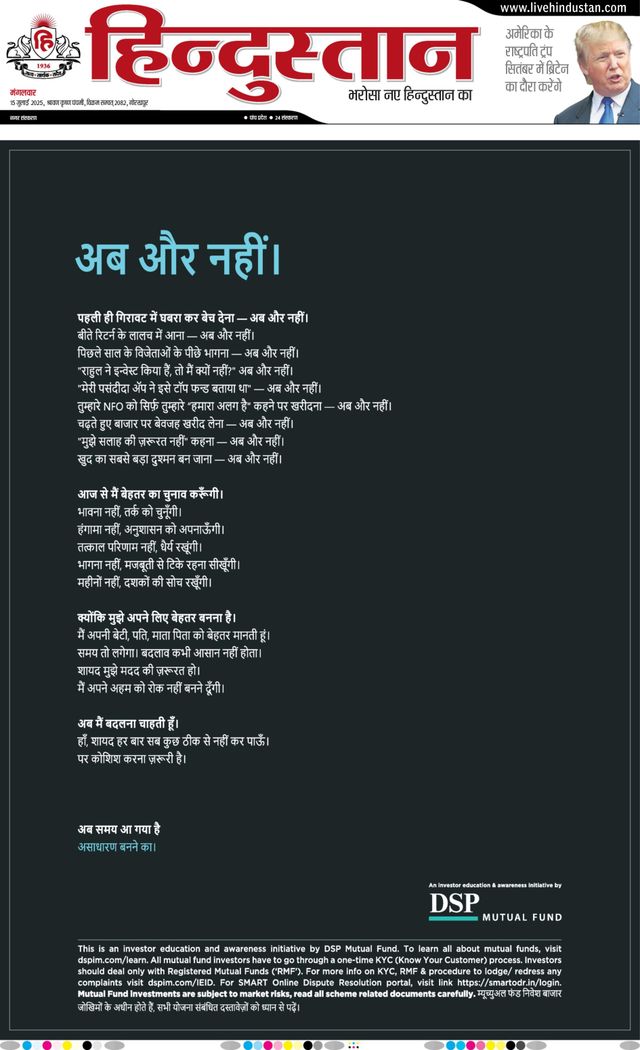 www.livehindustan.com
हि
1936
हिन्दुस्तान
भरोसा नए हिन्दुस्तान का
अमेरिका के
राष्ट्रपति ट्रंप
सितंबर में ब्रिटेन
का दौरा करेंगे
मंगलवार
15 जुलाई 2025, श्रावण कृष्ण पंचमी, विक्रम सम्वत् 2082, गोरखपुर
नगर संस्करण
● पांच प्रदेश ● 24 संस्करण
अब और नहीं।
पहली ही गिरावट में घबरा कर बेच देना — अब और नहीं।
बीते रिटर्न के लालच में आना — अब और नहीं।
पिछले साल के विजेताओं के पीछे भागना — अब और नहीं।
"राहुल ने इन्वेस्ट किया हैं, तो मैं क्यों नहीं?" अब और नहीं।
"मेरी पसंदीदा ॲप ने इसे टॉप फन्ड बताया था" — अब और नहीं।
तुम्हारे NFO को सिर्फ़ तुम्हारे "हमारा अलग है" कहने पर खरीदना — अब और नहीं।
चढ़ते हुए बाजार पर बेवजह खरीद लेना — अब और नहीं।
"मुझे सलाह की ज़रूरत नहीं" कहना — अब और नहीं।
खुद का सबसे बड़ा दुश्मन बन जाना — अब और नहीं।
आज से मैं बेहतर का चुनाव करूँगी।
भावना नहीं, तर्क को चुनूँगी।
हंगामा नहीं, अनुशासन को अपनाऊँगी।
तत्काल परिणाम नहीं, धैर्य रखूंगी।
भागना नहीं, मजबूती से टिके रहना सीखूँगी।
महीनों नहीं, दशकों की सोच रखूँगी।
क्योंकि मुझे अपने लिए बेहतर बनना है।
मैं अपनी बेटी, पति, माता पिता को बेहतर मानती हूं।
समय तो लगेगा। बदलाव कभी आसान नहीं होता।
शायद मुझे मदद की ज़रूरत हो।
मैं अपने अहम को रोक नहीं बनने दूँगी।
अब मैं बदलना चाहती हूँ।
हाँ, शायद हर बार सब कुछ ठीक से नहीं कर पाऊँ।
पर कोशिश करना ज़रूरी है।
अब समय आ गया है
असाधारण बनने का।
An investor education & awareness initiative by
DSP
MUTUAL FUND
This is an investor education and awareness initiative by DSP Mutual Fund. To learn all about mutual funds, visit
dspim.com/learn. All mutual fund investors have to go through a one-time KYC (Know Your Customer) process. Investors
should deal only with Registered Mutual Funds ('RMF'). For more info on KYC, RMF & procedure to lodge/ redress any
complaints visit dspim.com/IEID. For SMART Online Dispute Resolution portal, visit link https://smartodr.in/login.
Mutual Fund Investments are subject to market risks, read all scheme related documents carefully. म्यूच्युअल फंड निवेश बाजार
जोखिमों के अधीन होते हैं, सभी योजना संबंधित दस्तावेज़ों को ध्यान से पढ़ें।